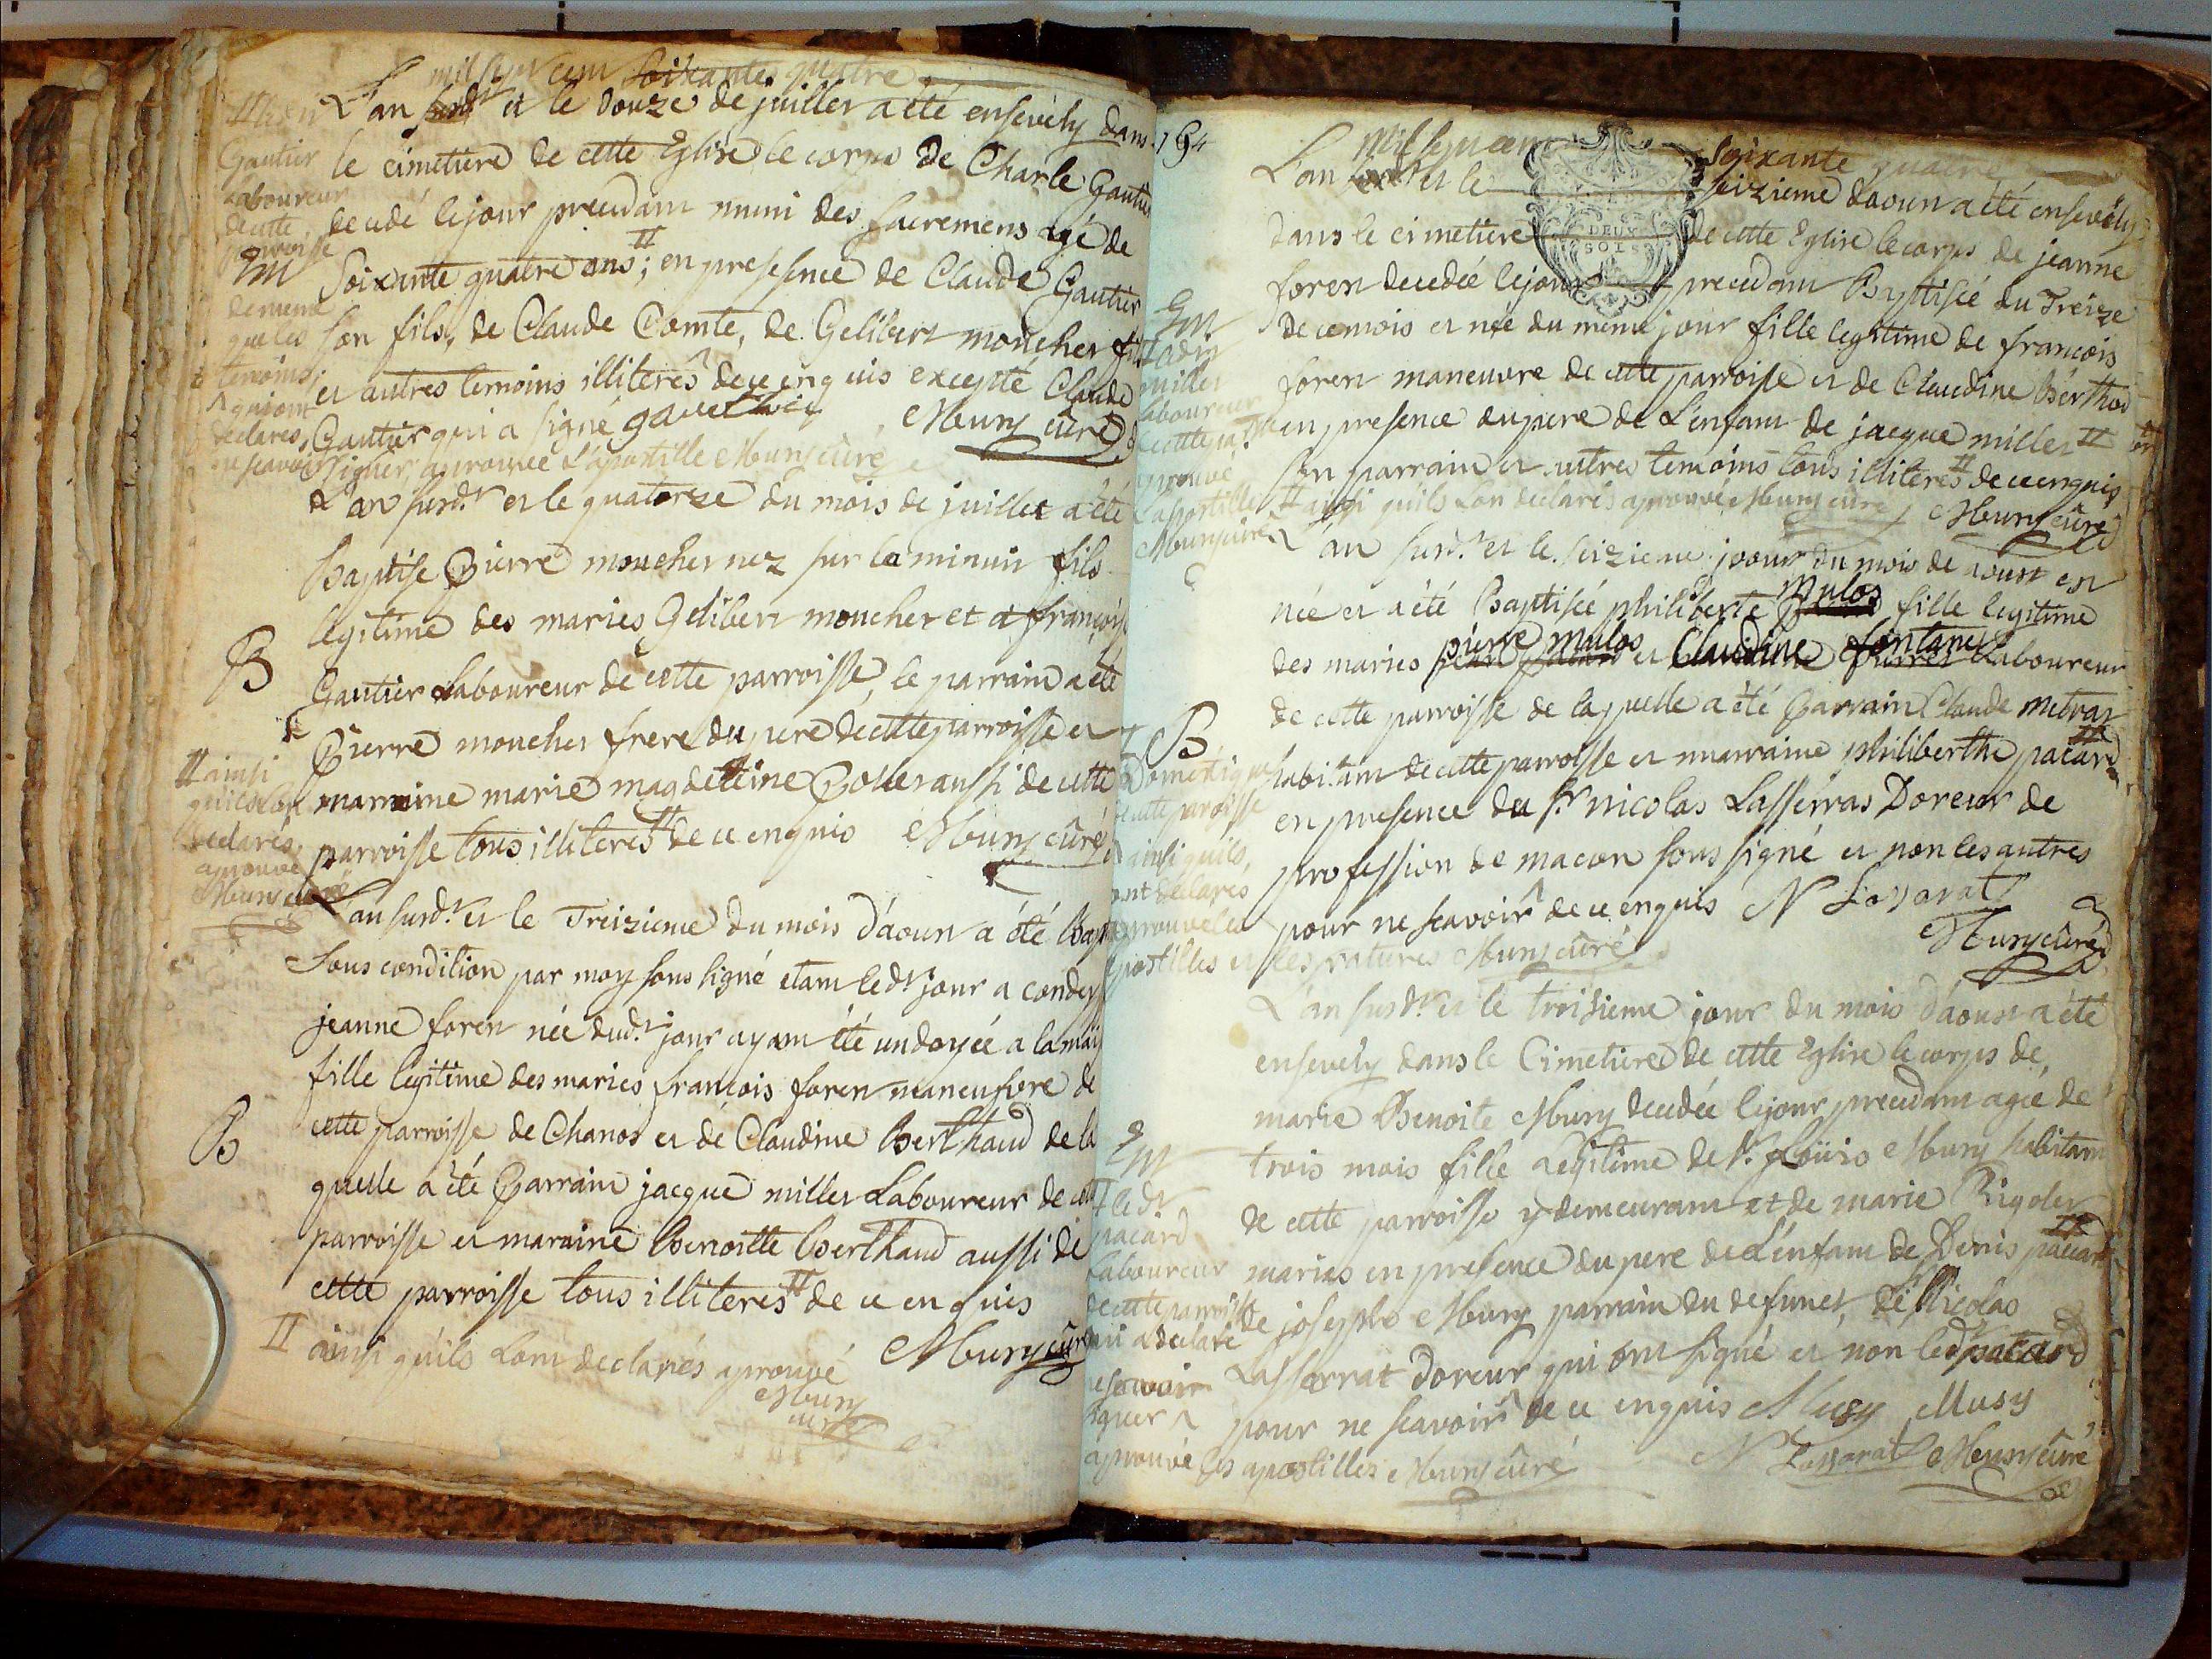 mil sept cent soixante quatre
L'an susdt et le douze de juillet a été ensevely dans
le cimetiere de cette Eglise le corps de Charle Gautier
decedé le jour precedam muni des sacremens agé de
soixante quatre ans; en presence de Claude Gautier
son fils, de Claude Comte, de Gelibert moucher
et autres temoins illiteres de ce enquis excepté Claude
Gautier qui a signé gauthier Mury curé
signer, aprouvée l'apostille Mury curé
Gautier
laboureur
de cette
parroisse
Em
de meme
que les
temoins
qui ont
declarés
ne scavoir
L'an susd.t et le quatorze du mois de juillet a été
Baptise Pierre moucher nez sur la minuit fils
legitime des maries Gelibert moucher et françoise
Gautier Laboureur de cette parroisse, le parrain a été
Pierre moucher frere du pere de cette parroisse et
marraine marie magdeleine aussi de cette
parroisse tous illiteres de ce enquis Mury curé
B
ainsi
qu'ils l'on
declarés
aprouvé
Mury curé
L'an susd.t et le Treizieme du mois d'aoust a été Bapt
sous condition par moy sous signé etam led.t jour a
jeanne foren née dud.t jour ayam été undoyée a la
fille legitime des maries francois foren maneuvre de
cette parroisse de Chanos et de Claudine Berthaud de la
quelle a été Parrain jacque miller Laboureur de cette
parroisse et maraine Benoitte Berthaud aussi de
cette parroisse tous illiteres de ce enquis
Mury curé
ainsi qu'ils l'ont declarés aprouvé
Mury
curé
B
mil sept cent soixante quatre
L'an et le seizieme daoust a été ensevely
dans le cimetiere de cette Eglise le corps de jeanne
foren decedée le jour precedam Baptisée du Treize
de ce mois et née du meme jour fille legitime de francois
foren maneuvre de cette parroisse et de Claudine Berthod
en presence du pere de l'enfam de jacque miller
son parrain et autres temoins tous illiteres de ce enquis
ainsi qu'ils l'on declarés aprouvé Mury curé Mury curé
Em
miller
laboureur
aprouvé
l'apostille
Mury curé
L'an susd.t et le seizieme jour du mois de aoust est
née et a été Baptisée philiberte Mulos fille legitime
des maries pierre mulos et Claudine fontane Laboureur
de cette parroisse de laquelle a été Parrain Claude metrar
habitam de cette parroisse et marraine philiberthe pacard
en presence du Sr nicolas Lasserras Doreur de
profession de macon sous signé et non les autres
pour ne scavoir de ce enquis N Lassarat
Mury curé
apostilles et les ratures Mury curé
B
Domestique
de cette paroisse
ainsi qu'ils
ont declarés
aprouvé les
L'an susd.t et le troisieme jour du mois d'aoust a été
ensevely dans le Cimetiere de cette Eglise le corps de
marie Benoite Mury decedée le jour precedam agée de
trois mois fille Legitime de Sr Loüis Mury habitam
de cette parroisse y demeuram et de marie Rigolet
maries en presence du pere de l'enfam de Denis paccard
de joseph Mury parrain du defunct, de Nicolas
Lasserrat Doreur qui ont signé et non led.t pacard
pour ne scavoir de ce enquis Musy Musy
aprouvé les apostilles Mury curé N Lassarat Mury curé
Em
led.t
pacard
Laboureur
de cette parroisse
qui a declaré
ne scavoir
signer
DEUX
SOLS